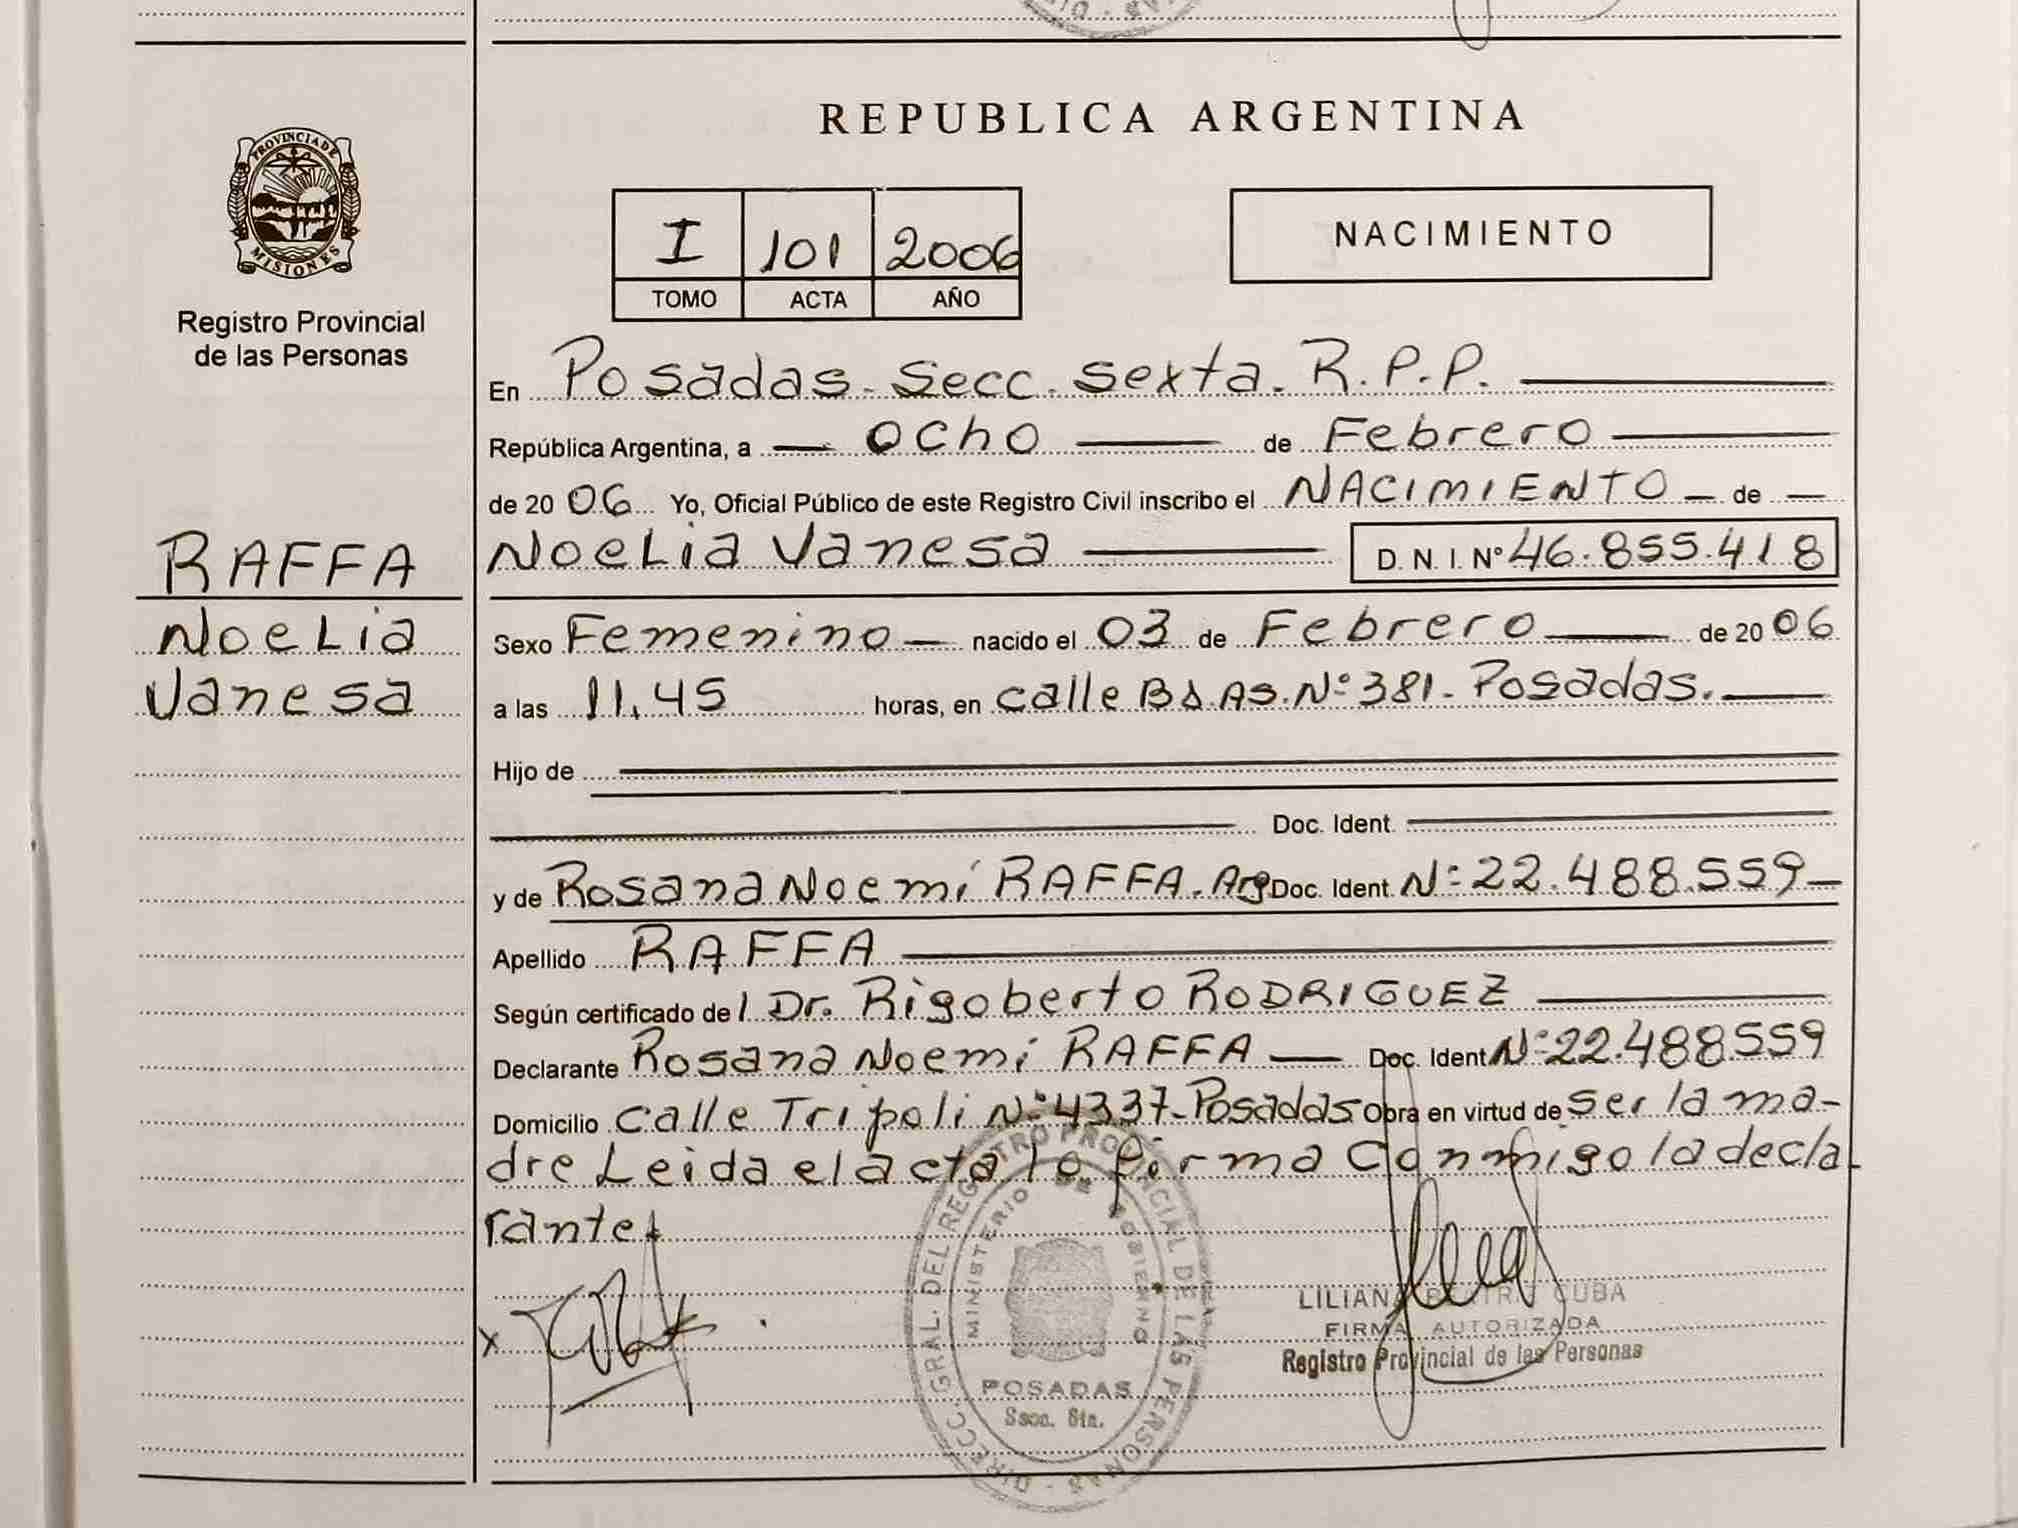 REPUBLICA ARGENTINA
PROVINCIA DE
MISIONES
Registro Provincial
de las Personas
I 101 2006
TOMO ACTA AÑO
NACIMIENTO
En Posadas - Secc. Sexta. R.P.P.
República Argentina, a ocho de Febrero
de 2006 Yo, Oficial Público de este Registro Civil inscribo el NACIMIENTO de
RAFFA
Noelia
Vanesa
Noelia Vanesa D.N.I. Nº 46.855.418
Sexo Femenino nacido el 03 de Febrero de 2006
a las 11,45 horas, en calle Bs.As. Nº 381 - Posadas.
Hijo de
Doc. Ident.
y de Rosana Noemí RAFFA. Arg Doc. Ident. Nº 22.488.559
Apellido RAFFA
Según certificado del Dr. Rigoberto RODRIGUEZ
Declarante Rosana Noemi RAFFA Doc. Ident Nº 22.488.559
Domicilio calle Tripoli Nº 4337 - Posadas Obra en virtud de ser la ma-
dre Leida el acta la firma conmigo la decla
rante
x
DIRECC. GRAL. DEL REGISTRO PROVINCIAL DE LAS PERSONAS
MINISTERIO DE GOBIERNO
POSADAS
Secc. 6ta.
LILIANA BEATRIZ CUBA
FIRMA AUTORIZADA
Registro Provincial de las Personas